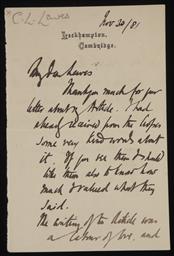 C. L. Lewes
Nov 30/81
Leckhampton,
Cambridge.
My dear Lewes
Thank you much for your
letter about my Article. I had
already received from the
some very kind words about
it. If you see them I should
like them also to know how
much I valued what they
said.
The writing of the Article was
a labour of love, and